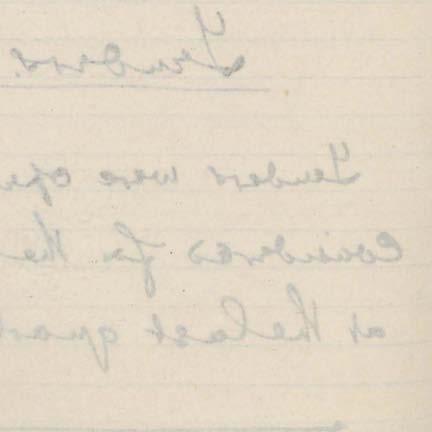 Tenders.
Tenders were ope
Considered for the
at the last quar